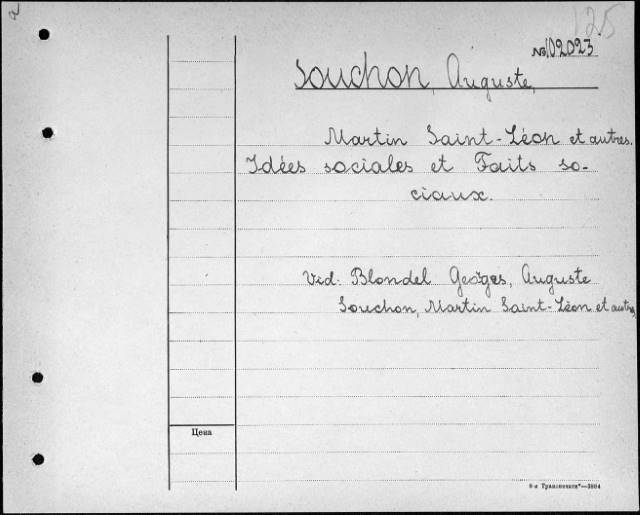 a
125
№ 102023
Souchon, Auguste,
Martin Saint-Léon et autres.
Idées sociales et Faits so-
ciaux.
Vid: Blondel Georges, Auguste
Souchon, Martin Saint-Léon et autres
Цена